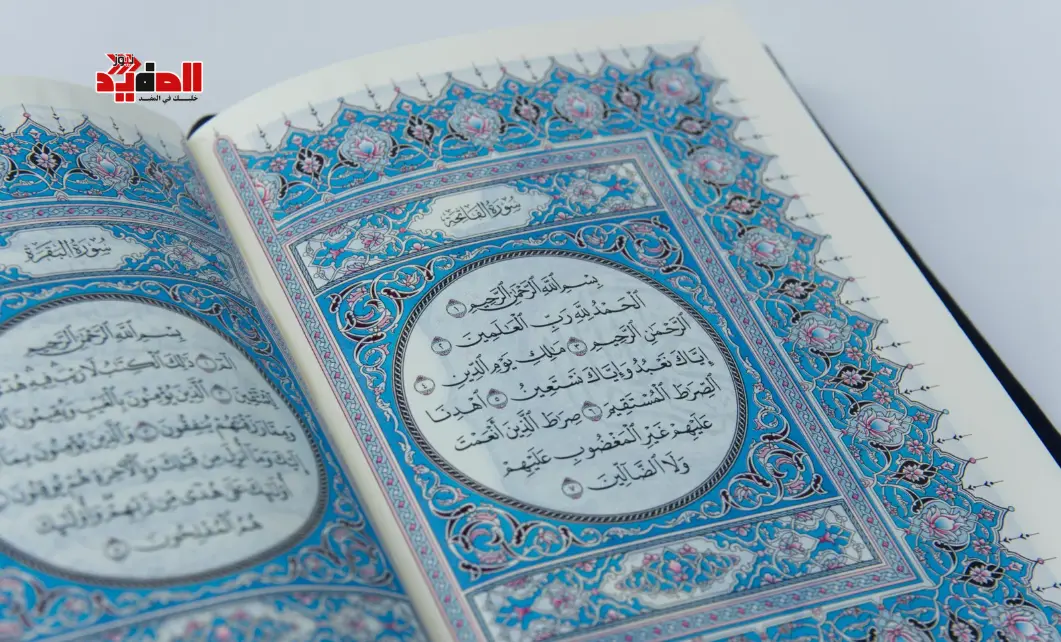 نيوز
المفيد
سُورَةُ الفَاتِحَةِ
بِسْمِ اللَّهِ الرَّحْمَٰنِ الرَّحِيمِ ١
الْحَمْدُ لِلَّهِ رَبِّ الْعَٰلَمِينَ ٢
الرَّحْمَٰنِ الرَّحِيمِ ٣ مَٰلِكِ يَوْمِ الدِّينِ ٤
إِيَّاكَ نَعْبُدُ وَإِيَّاكَ نَسْتَعِينُ ٥ اهْدِنَا
الصِّرَٰطَ الْمُسْتَقِيمَ ٦ صِرَٰطَ الَّذِينَ أَنْعَمْتَ
عَلَيْهِمْ غَيْرِ الْمَغْضُوبِ عَلَيْهِمْ
وَلَا الضَّالِّينَ ٧
سُورَةُ البَقَرَةِ
بِسْمِ اللَّهِ الرَّحْمَٰنِ الرَّحِيمِ
الم ١ ذَٰلِكَ الْكِتَٰبُ لَا رَيْبَ فِيهِ
لِلْمُتَّقِينَ ٢ الَّذِينَ يُؤْمِنُونَ بِالْغَيْبِ وَيُقِيمُونَ
وَمِمَّا رَزَقْنَٰهُمْ يُنفِقُونَ ٣ وَالَّذِينَ يُؤْمِنُونَ بِمَا
إِلَيْكَ وَمَا أُنزِلَ مِن قَبْلِكَ وَبِالْآخِرَةِ هُمْ يُوقِنُونَ
أُولَٰئِكَ عَلَىٰ هُدًى مِّن رَّبِّهِمْ وَأُولَٰئِكَ
هُمُ الْمُفْلِحُونَ ٥